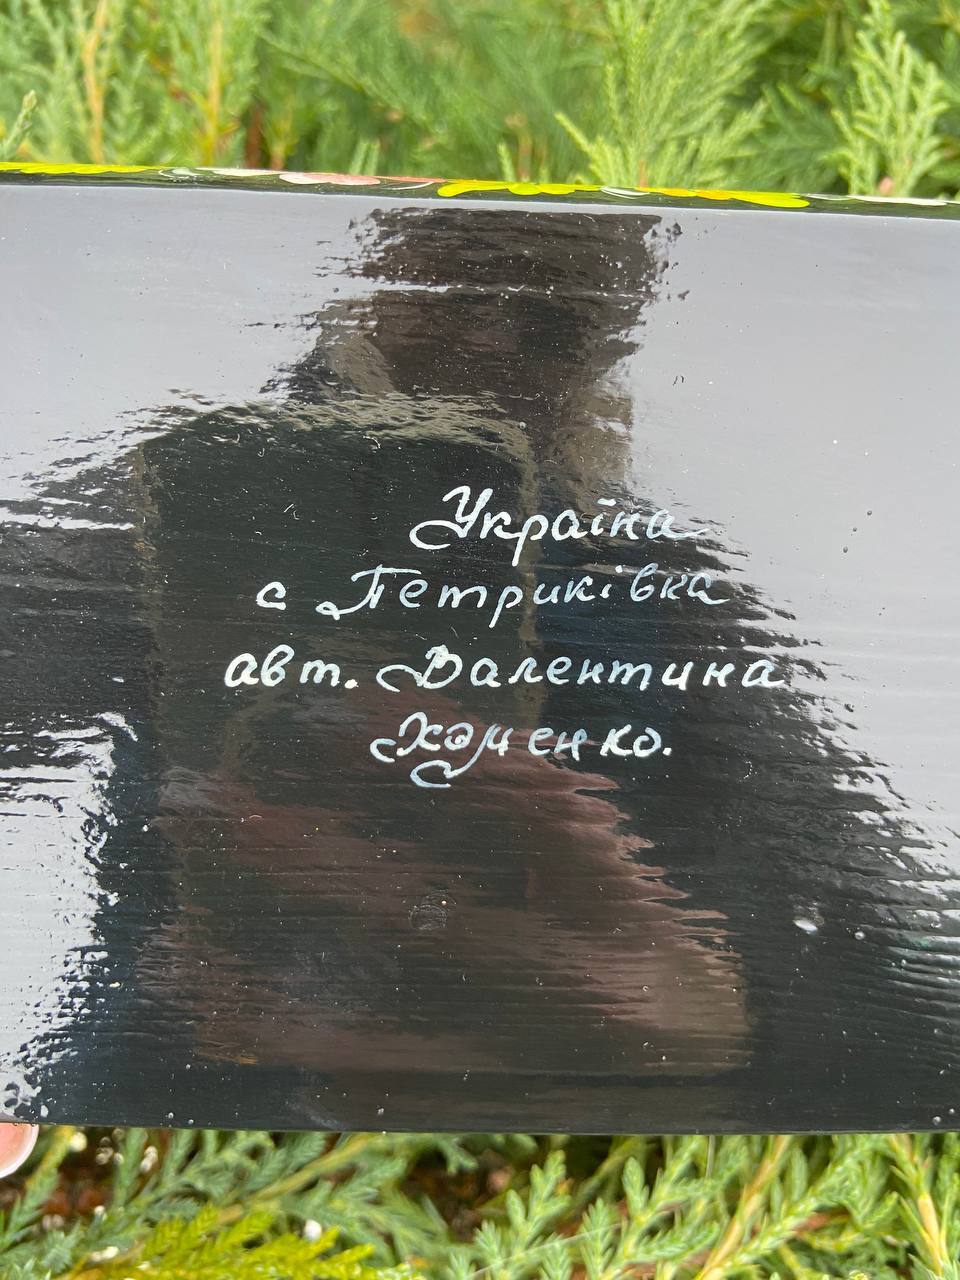 Україна
с Петриківка
авт. Валентина
Хоменко.